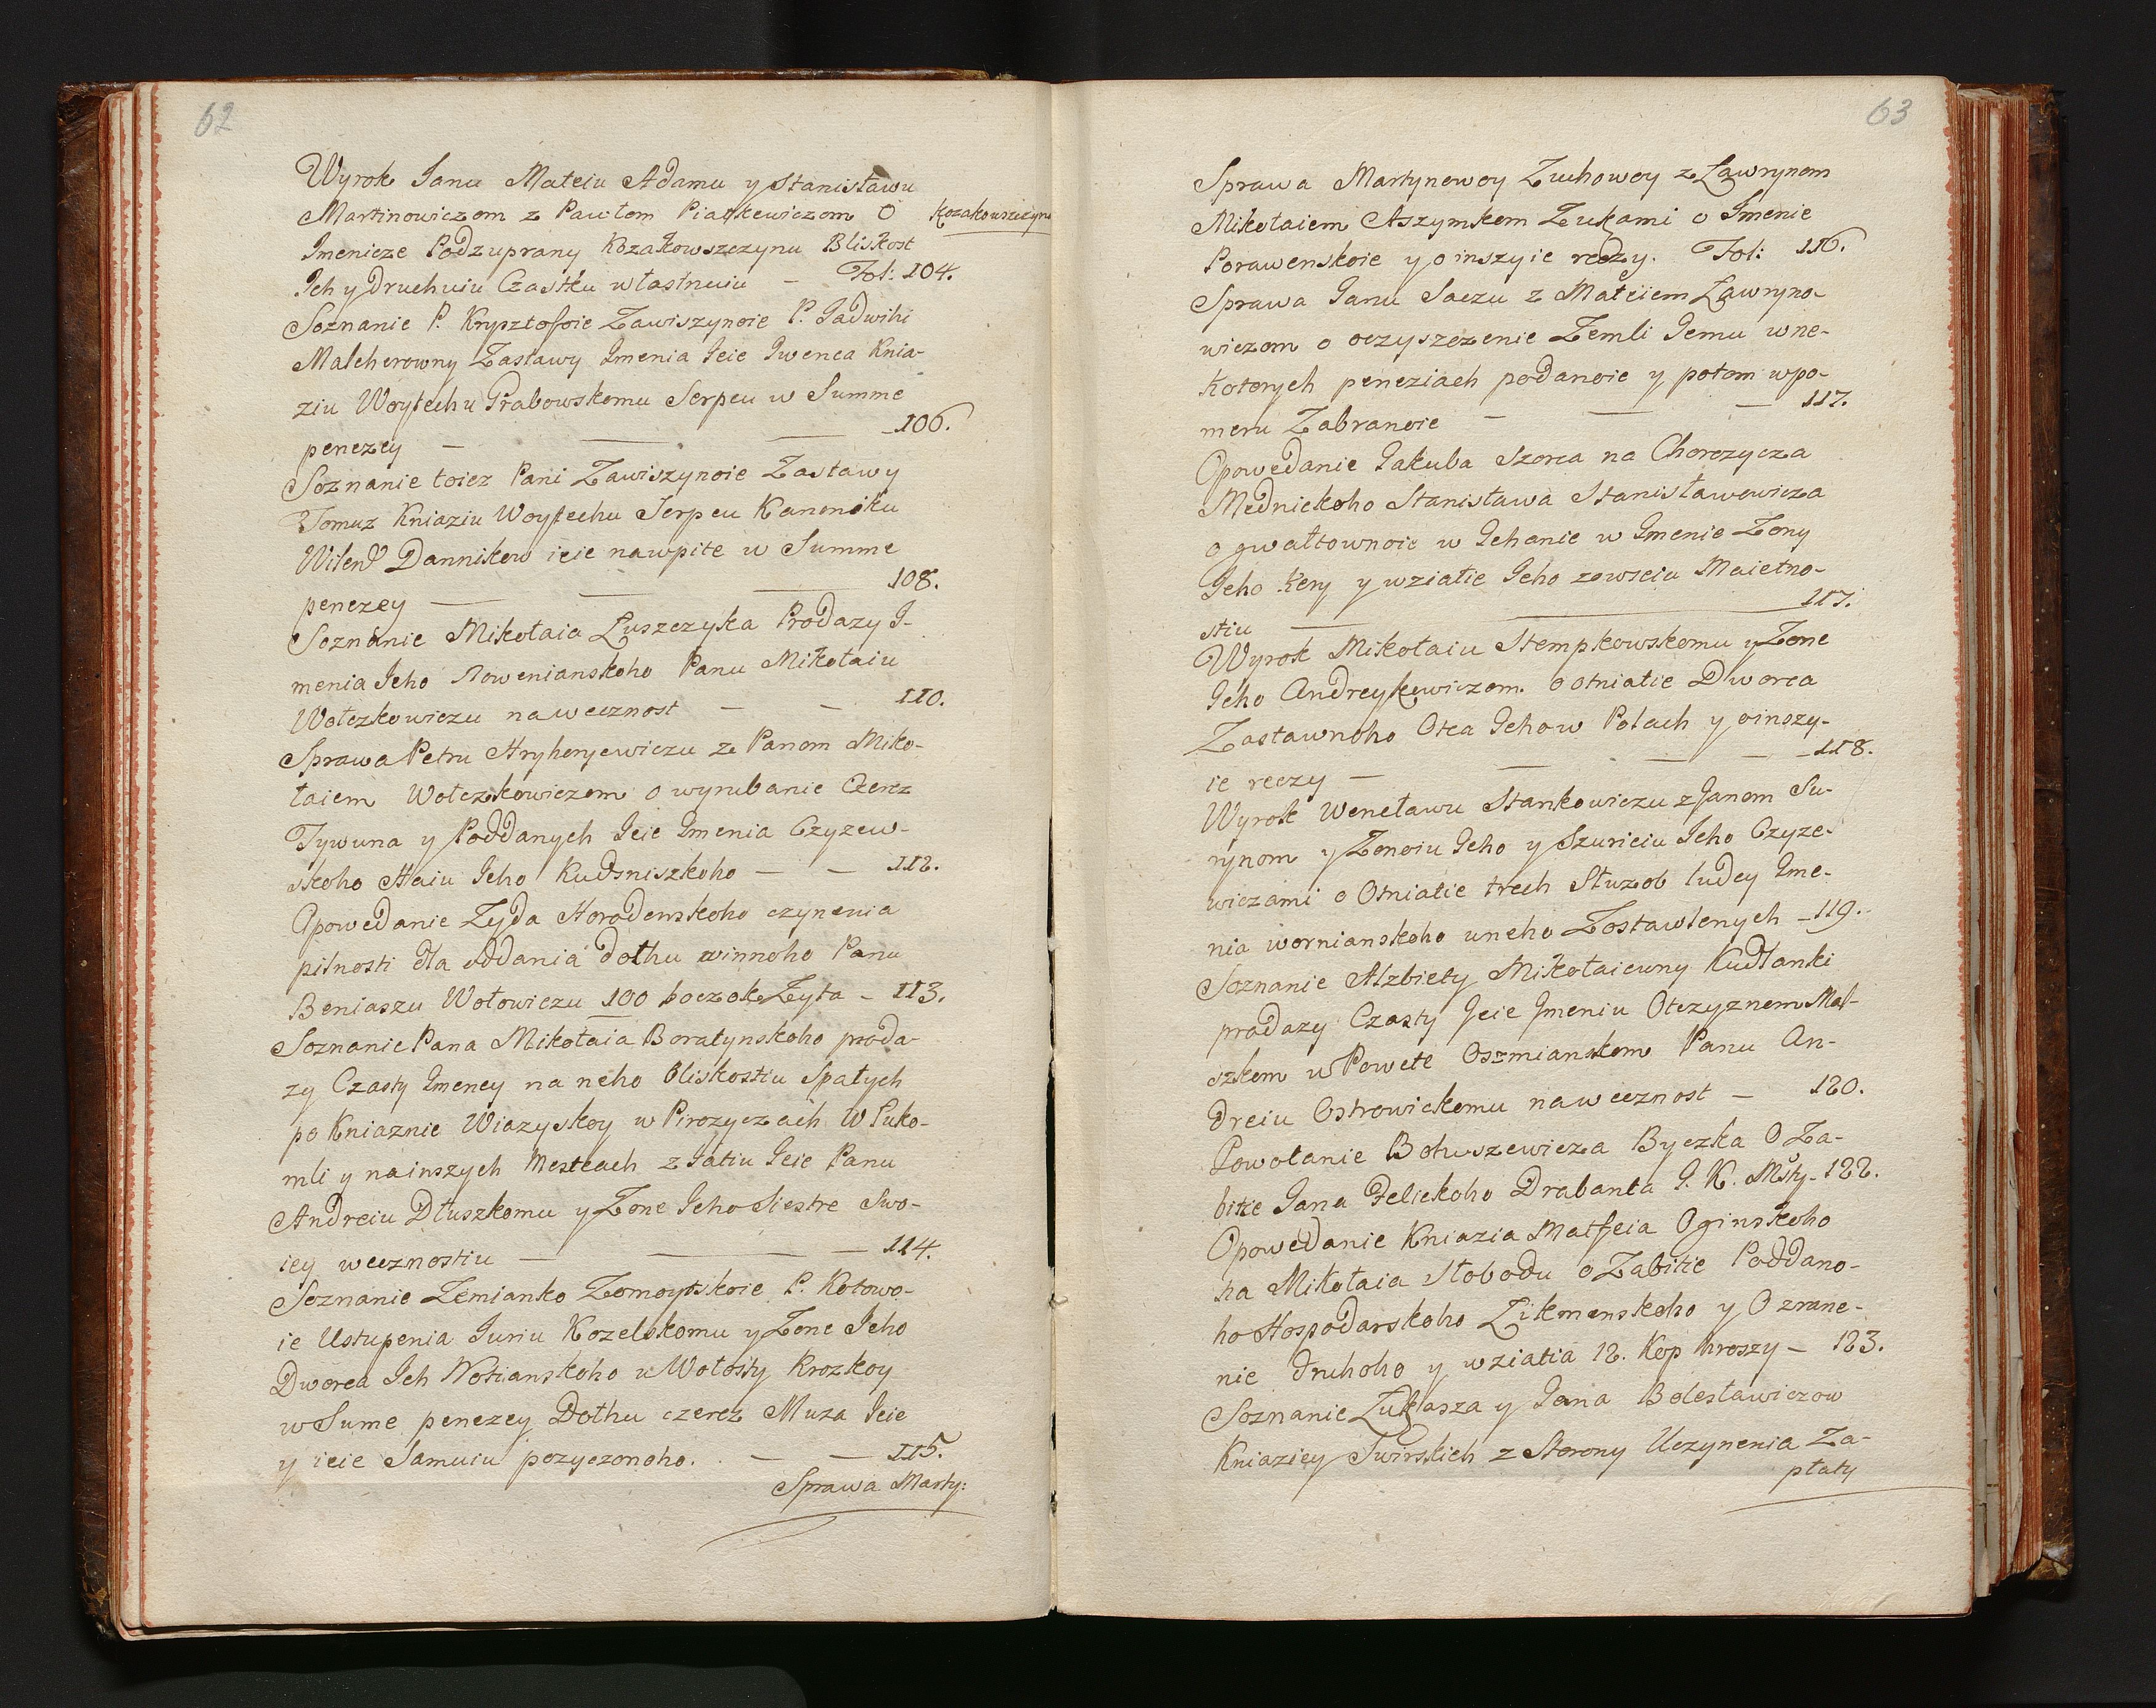 62
Wyrok Janu Mateiu Adamu y Stanisławu
Martinowiczom z Pawłom Piatkewiczom O Kozakowszczyn
Imenicze Podzuprany Kozakowszczynu Bliskost
Ich y Druchuiu Czastku własnuiu — Fol: 104.
Soznanie P. Krysztofoie Zawiszynoie P. Jadwihi
Malcherowny Zastawy Imenia Ieie Iwenca Knia-
ziu Woytechu Grabowskomu Serpcu w Summe
penezey — — — 106.
Soznanie toiez Pani Zawiszynoie Zastawy
Tomuz Kniaziu Woytechu Serpcu Kanoniku
Wilen Dannikow ieie nawpite w Summe
penezey — — — 108.
Soznanie Mikołaia Łuszczyka Prodazy I-
menia Jeho Nowenianskoho Panu Mikołaiu
Wołczkowiczu naweeznost — — 110.
Sprawa Petru Hryhoryewiczu ze Panom Miko-
łaiem Wołczkowiczom o wyrubanie Czerez
Tywuna y Poddanych Ieie Imenia Czyzew-
skoho Haiu Jeho Kudsniszkoho — — 112.
Opowedanie Zyda Horodenskoho czynenia
pilnosti dla oddania dołhu winnoho Panu
Beniaszu Wołowiczu 100 boczok Zyta — 113.
Soznanie Pana Mikołaia Boratynskoho proda-
zy Czasty Imeney na neho bliskostiu Spałych
po Kniaznie Wiazyskoy w Pirozyczach w Łuko-
mli y nainszych Mestcach z Jatiu Ieie Panu
Andreiu Dłuszkomu y Zone Jeho Siestre Swo-
iey weeznostiu — — — 114.
Soznanie Zemianko Zomoytskoie P. Kotowo-
ie Ustupenia Juriu Kozelskomu y Zone Jeho
Dworca Ich Notianskoho u Wołosty Krozkoy
w Sume penezey Dołhu czerez Muza Ieie
y ieie Samuiu pozyczonoho. — — 115.
Sprawa Marty:
63
Sprawa Martynowoy Zuchowoy z Ławrynom
Mikołaiem Aszymkom Zukami o Imenie
Porawenskoie y o inszyie reczy. Fol: 116.
Sprawa Janu Saczu z Mateiem Ławryno-
wiczom o oczyszczenie Zemli Iemu wne-
kotorych peneziach podanoie y potom wpo-
meru Zabranoie — — — 117.
Opowedanie Jakuba Szorca na Chorozycza
Mednickoho Stanisława Stanisławowicza
o gwałtownoie w Iehanie w Imenie Zony
Jeho Kery y wziatie Jeho zowseiu Maietno-
stiu — — 117.
Wyrok Mikołaiu Stempkowskomu y Zone
Jeho Andreykowiczom o otniatie Dworca
Zastawnoho Otca Jehow Polach y oinszy-
ie reczy — — — 118.
Wyrok Wencławu Stankowiczu z Janom Su-
rynom y Zonoiu Jeho y Szuriciu Jeho Czyze-
wiczami o Otniatie trech Słuzob ludey Ime-
nia wornianskoho uneho Zostawlenych — 119.
Soznanie Alzbiety Mikołaiewny Kudłanki
prodazy Czasty Ieie Imeniu Otczyznom Mal-
szkom w Powete Oszmianskom Panu An-
dreiu Ostrowickomu naweeznost — 120.
Powołanie Botuszewicza Byczka O Za-
bitie Jana Felickoho Drabanta J. K. Msty — 122.
Opowedanie Kniazia Matfeia Oginskoho
na Mikołaia Słobodu o Zabitie Poddano-
ho Hospodarskoho Zikmonskoho y O zrane-
nie druhoho y wziatia 12. Kop hroszy — 123.
Soznanie Łukasza y Jana Bolesławiczow
Kniaziey Swirskich z Storony Uczynenia Za-
płaty